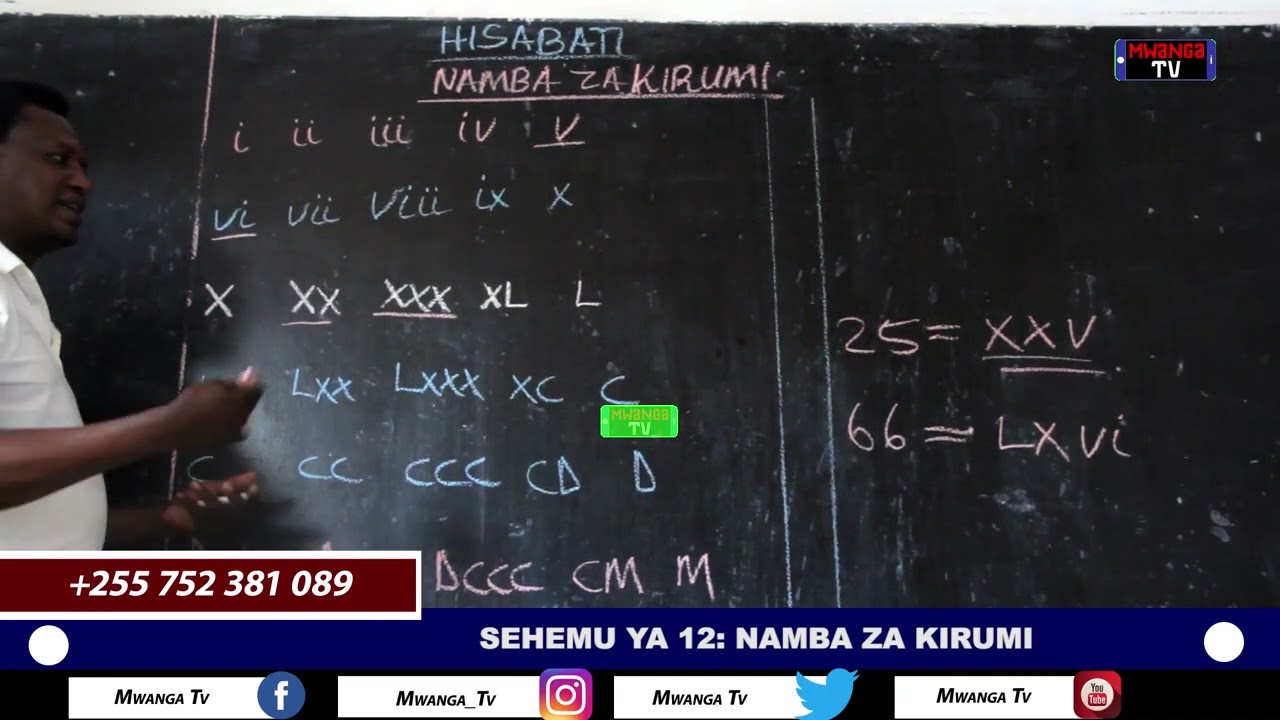 HISABATI
NAMBA ZA KIRUMI
MWANGA TV
i ii iii iv v
vi vii viii ix x
X XX XXX XL L
Lxx Lxxx XC C
MWANGA TV
C CC CCC CD D
DCCC CM M
25 = XXV
66 = LXVi
+255 752 381 089
SEHEMU YA 12: NAMBA ZA KIRUMI
MWANGA TV f MWANGA_TV MWANGA TV MWANGA TV You Tube